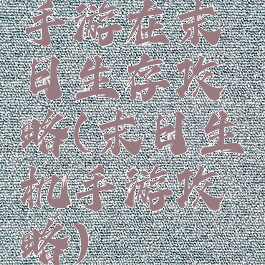 手游在末
日生存攻
略(末日生
机手游攻
略)